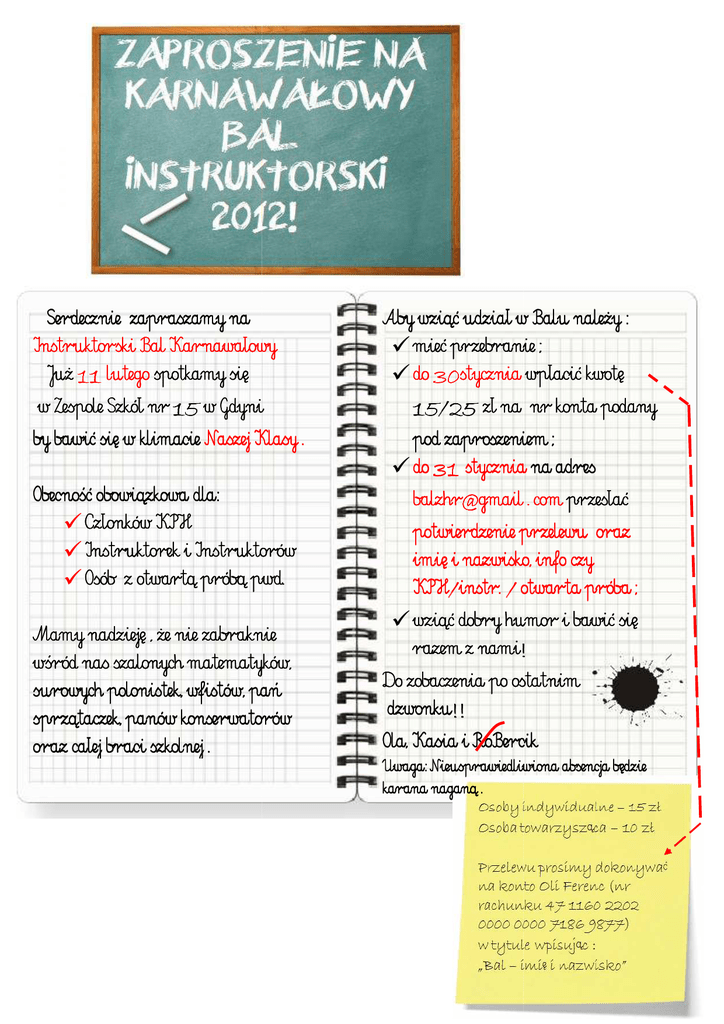 ZAPROSZENIE NA
KARNAWAŁOWY
BAL
INSTRUKTORSKI
2012!
Serdecznie zapraszamy na
Instruktorski Bal Karnawałowy
Już 11 lutego spotkamy się
w Zespole Szkół nr 15 w Gdyni
by bawić się w klimacie Naszej Klasy.
Obecność obowiązkowa dla:
✓ Członków KPH
✓ Instruktorek i Instruktorów
✓ Osób z otwartą próbą pwd.
Mamy nadzieję, że nie zabraknie
wśród nas szalonych matematyków,
surowych polonistek, wfistów, pań
sprzątaczek, panów konserwatorów
oraz całej braci szkolnej.
Aby wziąć udział w Balu należy:
✓ mieć przebranie;
✓ do 30stycznia wpłacić kwotę
15/25 zł na nr konta podany
pod zaproszeniem;
✓ do 31 stycznia na adres
balzhr@gmail.com przesłać
potwierdzenie przelewu oraz
imię i nazwisko, info czy
KPH/instr. / otwarta próba;
✓ wziąć dobry humor i bawić się
razem z nami!
Do zobaczenia po ostatnim
dzwonku!!
Ola, Kasia i RoBercik
Uwaga: Nieusprawiedliwiona absencja będzie
karana naganą.
Osoby indywidualne – 15 zł
Osoba towarzysząca – 10 zł
Przelewu prosimy dokonywać
na konto Oli Ferenc (nr
rachunku 47 1160 2202
0000 0000 7186 9877)
w tytule wpisując:
„Bal – imię i nazwisko”